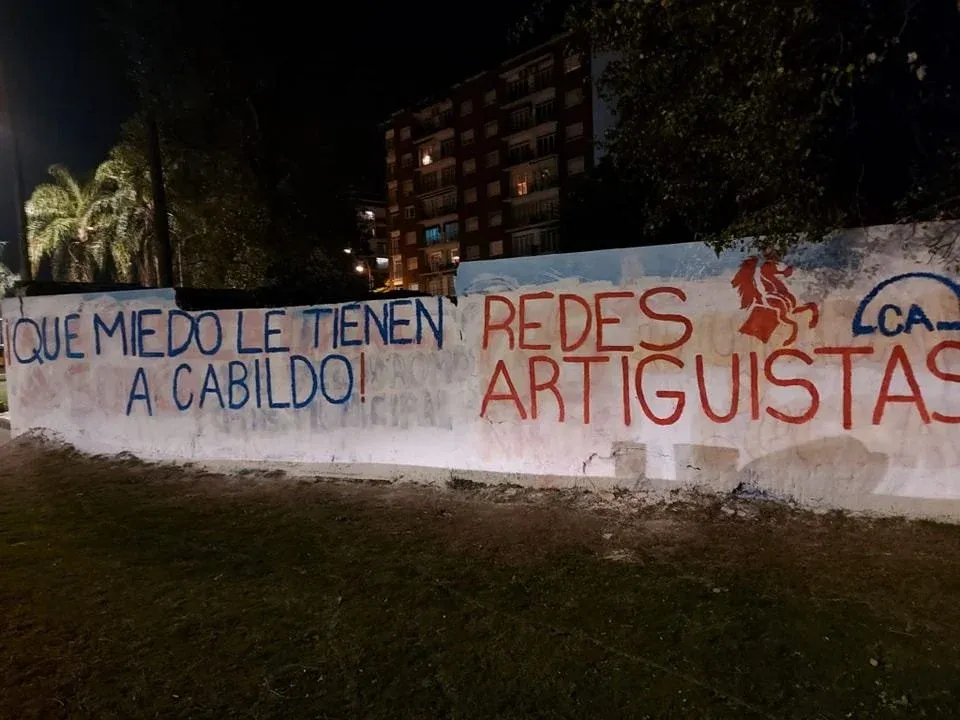 QUÉ MIEDO LE TIENEN
A CABILDO!
REDES
ARTIGUISTAS
CA